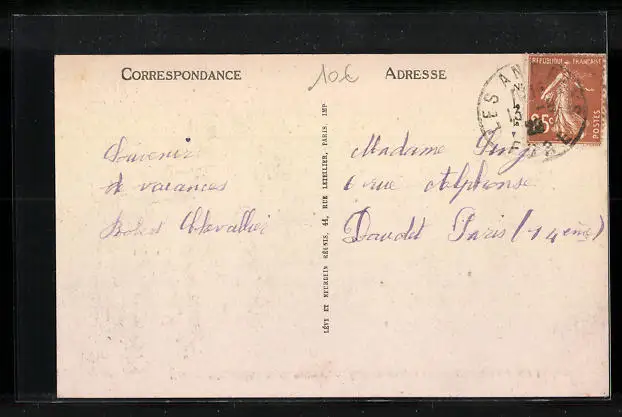 CORRESPONDANCE
10€
ADRESSE
REPUBLIQUE FRANÇAISE
25c
POSTES
LES AN
EURE
Souvenir
de vacances
Robert Chevallier
LÉVY ET NEURDEIN RÉUNIS, 44, RUE LETELLIER, PARIS IMP
Madame
6 rue Alphonse
Daudet Paris (14eme)